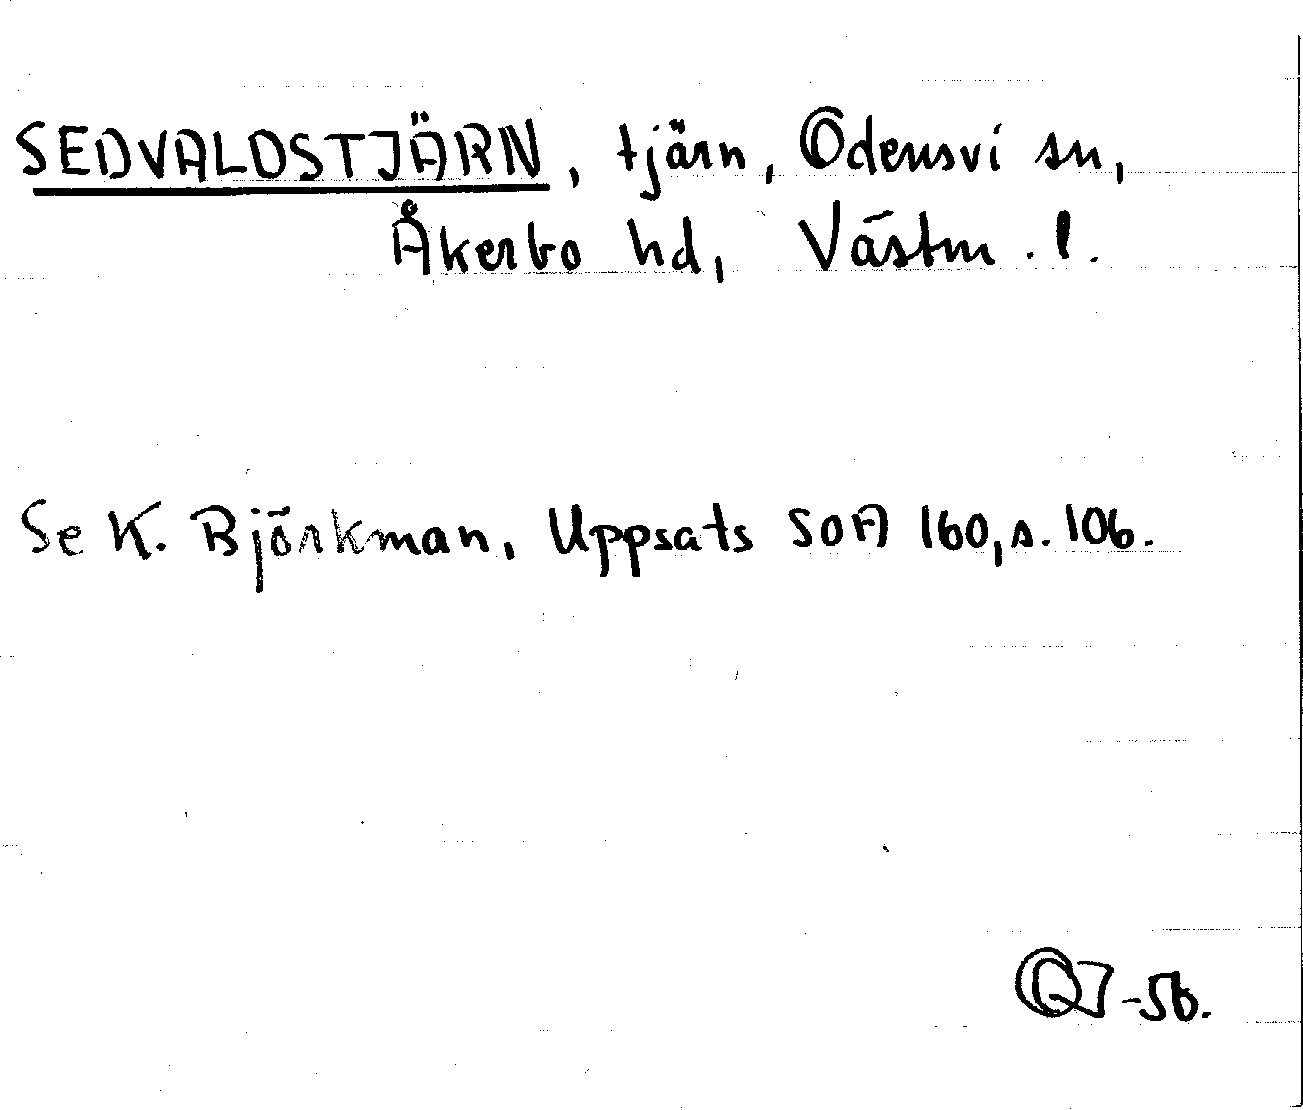 SEDVALDSTJÄRN, tjärn, Odensvi sn,
Åkerbo hd, Västm. l.
Se K. Björkman, Uppsats SOA 160, s. 106.
-56.